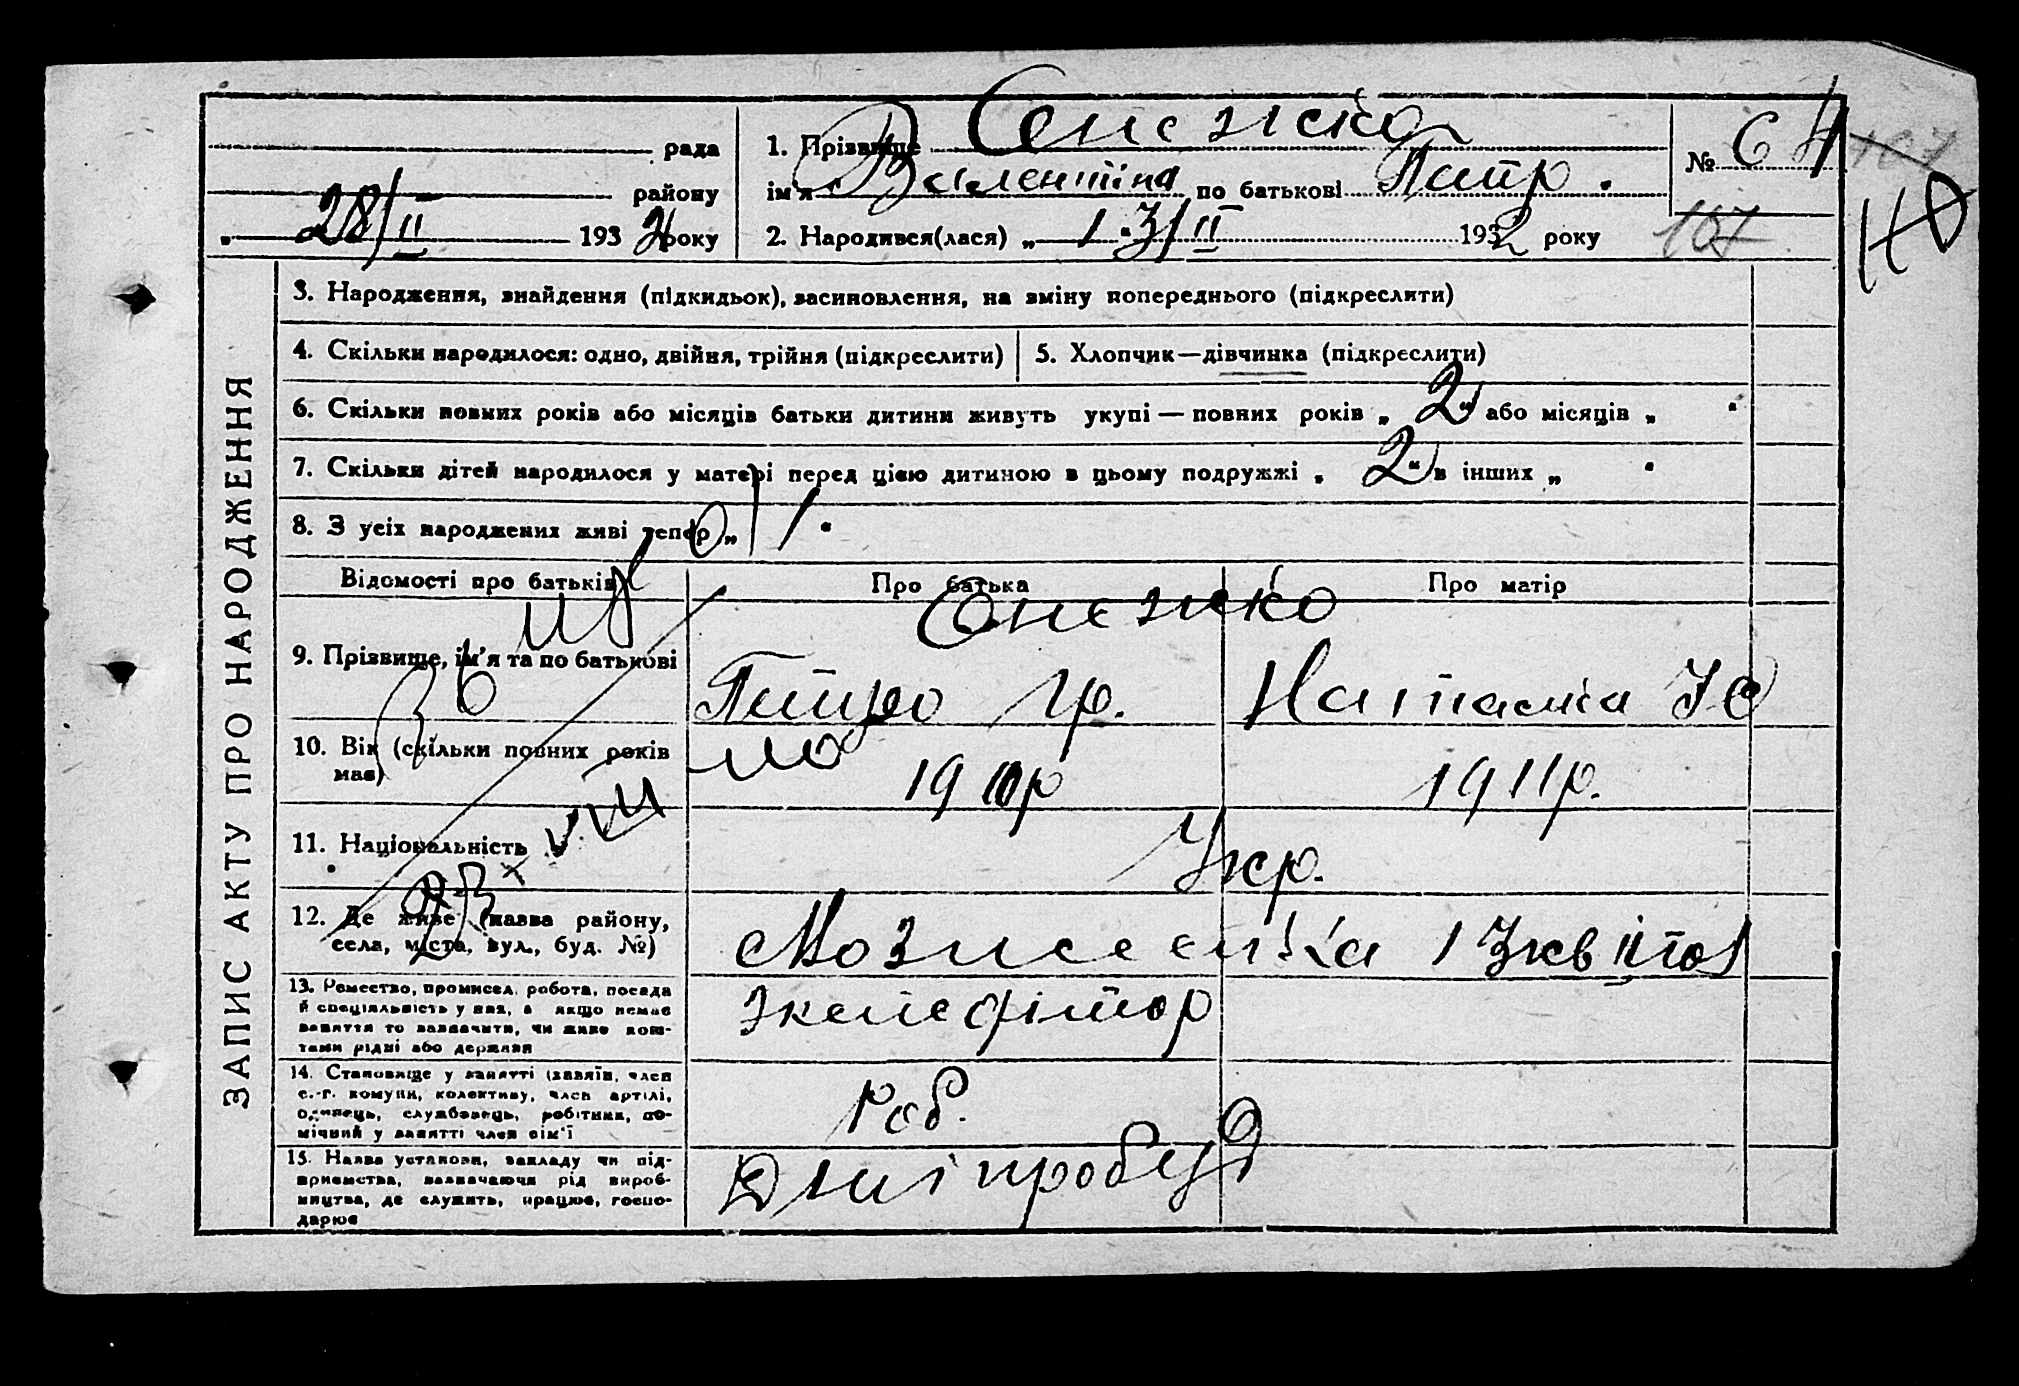 рада
1. Прізвище Снєжко
№ 64
107
району
ім'я Валентіна по батькові Питр.
„ 28/II 1932 року
2. Народився(лася) „ 13/II 1932 року
107
3. Народження, знайдення (підкидьок), засиновлення, на зміну попереднього (підкреслити)
4. Скільки народилося: одно, двійня, трійня (підкреслити)
5. Хлопчик—дівчинка (підкреслити)
6. Скільки повних років або місяців батьки дитини живуть укупі — повних років „ 2 “ або місяців „
7. Скільки дітей народилося у матері перед цією дитиною в цьому подружжі „ 2 “ в інших „
8. З усіх народжених живі тепер „ 1
ЗАПИС АКТУ ПРО НАРОДЖЕННЯ
Відомості про батьків
Про батька
Про матір
Снєжко
9. Прізвище, ім'я та по батькові
Питро Гр.
Наташка
10. Вік (скільки повних років має)
1910р
1911р.
11. Національність
Укр.
VIII
12. Де живе (назва району, села, міста, вул., буд. №)
13. Ремество, промисел, робота, посада й спеціяльність у них, а якщо немає заняття то зазначити, чи живе коштами рідні або держави
14. Становище у занятті (хазяїн, член с.-г. комуни, колективу, член артілі, одинець, службовець, робітник, помічний у занятті член сім'ї
Роб.
15. Назва установи, закладу чи підприємства, зазначаючи рід виробництва, де служить, працює, господарює
Дніпробуд